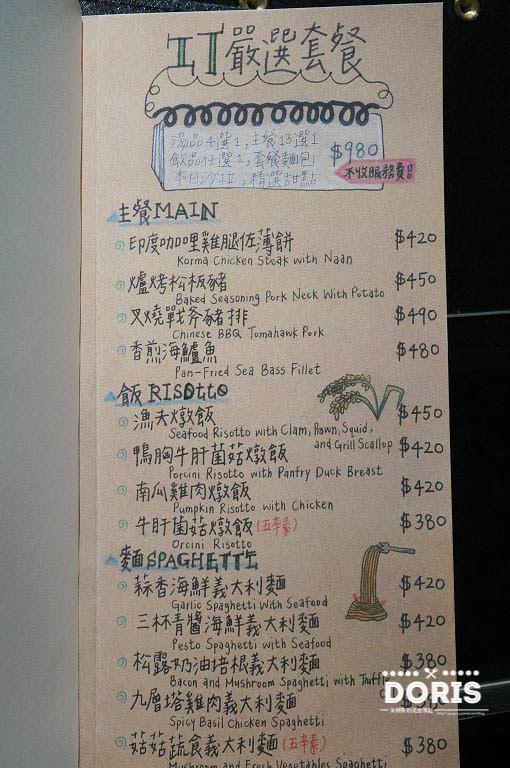 IT嚴選套餐
湯品4選1,主餐13選1
飲品任選1,套餐麵包
本日沙拉,精選甜點
$980
不收服務費
主餐MAIN
印度咖哩雞腿佐薄餅 $420
Korma Chicken Steak with Naan
爐烤松板豬 $450
Baked Seasoning Pork Neck With Potato
叉燒戰斧豬排 $490
Chinese BBQ Tomahawk Pork
香煎海鱸魚 $480
Pan-Fried Sea Bass Fillet
飯RISOTTO
漁夫燉飯 $450
Seafood Risotto with Clam, Pawn, Squid,
and Grill Scallop
鴨胸牛肝菌菇燉飯 $420
Porcini Risotto with Panfry Duck Breast
南瓜雞肉燉飯 $420
Pumpkin Risotto with Chicken
牛肝菌菇燉飯(五辛素) $380
Orcini Risotto
麵SPAGHETTI
蒜香海鮮義大利麵 $420
Garlic Spaghetti With Seafood
三杯青醬海鮮義大利麵 $420
Pesto Spaghetti with Seafood
松露奶油培根義大利麵 $380
Bacon and Mushroom Spaghetti with Truffle
九層塔雞肉義大利麵
Spicy Basil Chicken Spaghetti
菇菇蔬食義大利麵(五辛素) $380
Mushroom and Fresh Vegetables Spaghetti
DORIS